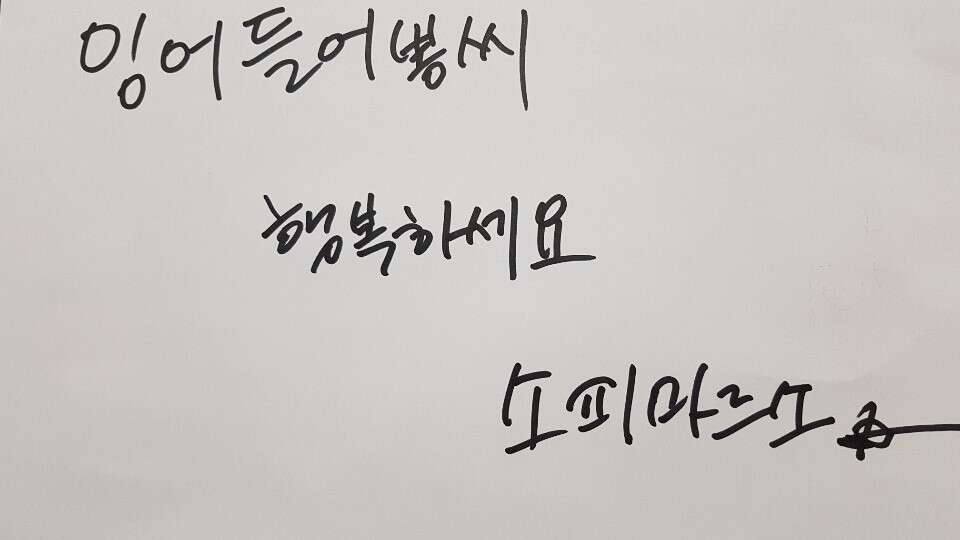 잉어들어뽕씨
행복하세요
소피마르소